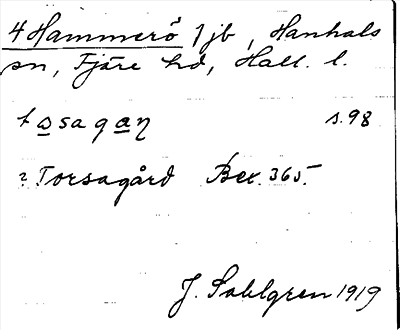 4 Hammerö 1 jb, Hanhals
sn, Fjäre hd, Hall. l.
tasagaŋ s. 98
? Torsagård Bex. 365.
J. Sahlgren 1919